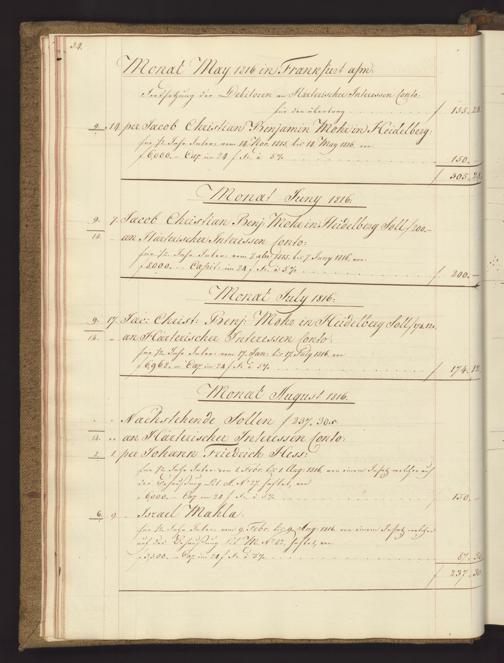 34.
Monat May 1816 in Frankfurt a/m.
Fortsetzung der Debitoren an Härterischer Interessen Conto.
für den übertrag f 155.28
9. 14. per Jacob Christian Benjamin Mohr in Heidelberg.
für ½ Jahr Inter. vom 14 Nov. 1815. bis 14 May 1816. von
f 6000.– Cap. im 24 f. à 5% 150.–
f 305.28
Monat Juny 1816.
9. 7. Jacob Christian Benj. Mohr in Heidelberg Soll f 200.–
14. – an Härterischer Interessen Conto.
für ½ Jahr Inter. bis 7 Juny 1816. von
f 8000.– Capit. im 24 f. à 5% f 200.–
Monat July 1816.
9. 17. Jac: Christ: Benj: Mohr in Heidelberg Soll f 174.12.
14. – an Härterischer Interessen Conto.
für ½ Jahr Inter. vom 17. Jan. bis 17. July 1816. von
f 6962.– Cap. im 24 f. à 5% f 174.12
Monat August 1816.
– Nachstehende Sollen f 237.30.
14. – an Härterischer Interessen Conto.
2. 1. per Johann Friedrich Hess:
für ½ Jahr Inter. vom 1. Aug. 1816. von einem
der Behausung Lit. N. 27. haftet, von
f 6000.– Cap. im 24 f. à 5% f 150.–
6. 9. – Israel Mahla.
für ½ Jahr Inter. vom 9. Febr. bis 9. Aug. 1816. von einem
auf der Behausung Lit. M. N. 82. haftet, von
f 3500.– Cap. im 24 f. à 5% 87.30
f 237.30